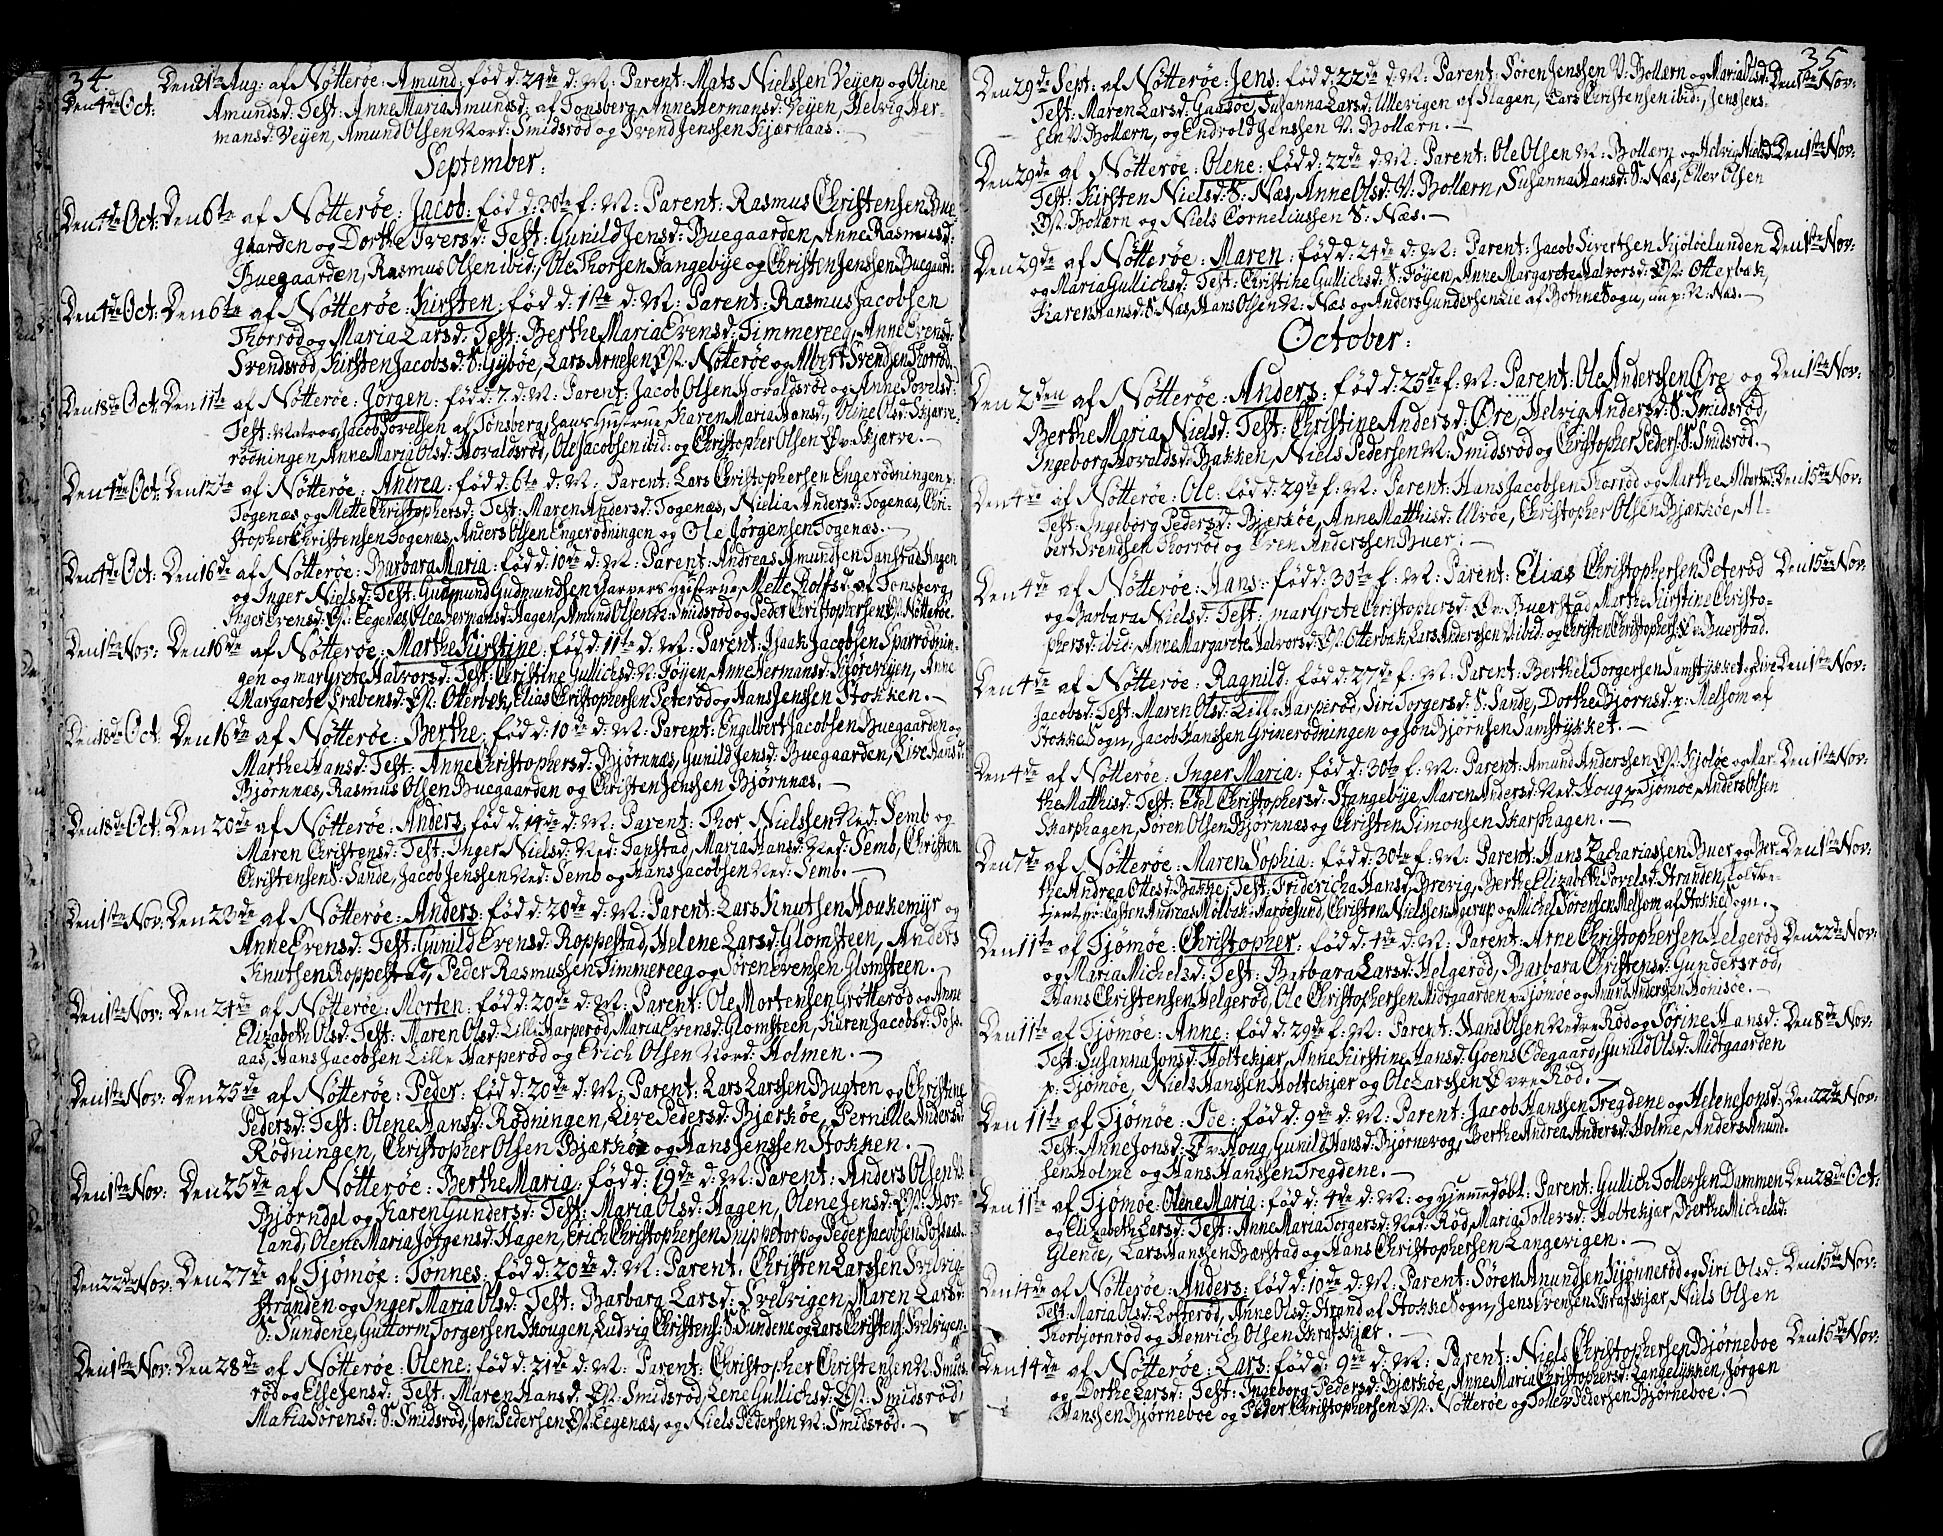 34.
Den 31te Aug: af Nötteröe: Amund: född: 24de d: M: Parent: Mats Nielssen Vejen og Oline
Den 4de Oct: Amundsd: Test: Anne Maria Amundsd: af Tonsberg, Anne Hermansd: Vejen, Helvig Her-
mansd: Vejen, Amund Olsen Nord: Smidsröd og Svend Jenssen Kjærnaas. —
September:
Den 4de Oct: Den 6te af Nötteröe: Jacob: född: 30te f: M: Parent: Rasmus Christensen Bue-
gaarden og Dorthe Iversd: Test: Gunild Jensd: Buegaarden, Anne Rasmusd:
Buegaarden, Rasmus Olsen ibid:, Ole Thorsen Stangebÿe og Christen Jenssen Buegaard:
Den 4de Oct: Den 6te af Nötteröe: Kirsten: född: 1ste d: M: Parent: Rasmus Jacobsen
Thorröd og Maria Larsd: Test: Berthe Maria Evensd: Timmereeg, Anne Evensd:
Svendsröd, Kirsten Jacobsd: S: Gipöe, Lars Arnesen Ø: Nötteröe og Albert Svendsen Thorröd.
Den 18de Oct: Den 11te af Nötteröe: Jörgen: född: 7. d: M: Parent: Jacob Olsen Hovaldsröd og Anne Povelsd:
Test: Matros Jacob Povelsen af Tönsberg, hans Hustrue, Karen Maria Hansd:, Oline Olsd: Skjærre-
rödningen, Anne Maria Olsd: Hovaldsröd, Ole Jacobsen ibid: og Christopher Olsen Øv: Skjærre. —
Den 4de Oct: Den 12te af Nötteröe: Andrea: född: 6te d: M: Parent: Lars Christophersen Engerödningen p:
Togenæs og Mette Christophersd: Test: Maren Andersd: Togenæs, Nielia Andersd: Togenæs, Chri-
stopher Christensen Togenæs, Anders Olsen Engerödningen og Ole Jörgensen Togenæs. —
Den 4de Oct: Den 16de af Nötteröe: Barbara Maria: född: 10de d: M: Parent: Andreas Amundsen Tanstad Hagen
og Inger Nielsd: Test: Gudmund Gudmundsen Harpers Hustrue, Mette Rolfsd: af Tonsberg,
Inger Evensd: Ø: Eegenes, Olea Hermansd: Hagen, Amund Olsen N: Smidsröd og Peder Christophersen Ø: Nötteröe.
Den 1ste Nov: Den 16de af Nötteröe: Marthe Kirstine: född: 11te d: M: Parent: Isaak Jacobsen Sparrodnin-
gen og Margrete Halvorsd: Test: Christine Gullichsd: N: Föÿen, Anne Hermansd: Kjöreviÿen, Anne
Margarete Prebensd: Ø: Otterbek, Elias Christophersen Peteröd og Hans Jenssen Stokken. —
Den 18de Oct: Den 16de af Nötteröe: Berthe: född: 10de d: M: Parent: Engelbert Jacobsen Buegaarden og
Marthe Hansd: Test: Anne Christophersd: Björnnæs, Gunild Jensd: Buegaarden, Live Hansd:
Björnnæs, Rasmus Olsen Buegaarden og Christen Jenssen Björnnæs. —
Den 18de Oct: Den 20de af Nötteröe: Anders: född: 14de d: M: Parent: Thor Nielssen Ned: Semb og
Maren Christensd: Test: Inger Nielsd: Ned: Tanstad, Maria Hansd: Ned: Semb, Christen
Christensen S: Sande, Jacob Jenssen Ned: Semb og Hans Jacobsen Ned: Semb. —
Den 1ste Nov: Den 23de af Nötteröe: Anders: född: 20de d: M: Parent: Lars Knutsen Houkemÿr og
Anne Evensd: Test: Gunild Evensd: Roppestad, Helene Larsd: Glomsteen, Anders
Knutsen Roppestad, Peder Rasmussen Timmereeg og Sören Evensen Glomsteen. —
Den 1ste Nov: Den 24de af Nötteröe: Morten: född: 20de d: M: Parent: Ole Mortensen Grötteröd og Anne
Elizabeth Olsd: Test: Maren Olsd: Lille Harperöd, Maria Evensd: Glomsteen, Karen Jacobsd: Poss-
aas, Hans Jacobsen Lille Harperöd og Erich Olsen Nord: Holmen. —
Den 1ste Nov: Den 25de af Nötteröe: Peder: född: 20de d: M: Parent: Lars Larssen Bugten og Christine
Pedersd: Test: Olene Hansd: Rödningen, Live Pedersd: Bjærköe, Pernille Andersd:
Rödningen, Christopher Olsen Bjærköe og Hans Jenssen Stokken. —
Den 1ste Nov: Den 25de af Nötteröe: Berthe Maria: född: 19de d: M: Parent: Anders Olsen N:
Björndal og Karen Gundersd: Test: Maria Olsd: Hagen, Olene Jensd: Ø: Hov-
land, Olene Maria Jörgensd: Hagen, Erich Christophersen Snippetorp og Peder Jacobsen Possaas.
Den 22de Nov: Den 27de af Tjömöe: Tönnes: född: 20de d: M: Parent: Christen Larssen Svelvig-
stranden og Inger Maria Olsd: Test: Barbara Larsd: Svelvigen, Maren Larsd:
S: Sundene, Guttorm Torgersen Skougen, Ludvig Christens: S: Sundene og Lars Christens: Svelvigen.
Den 1ste Nov: Den 28de af Nötteröe: Olene: född: 21de d: M: Parent: Christopher Christensen N: Smids-
röd og Else Jensd: Test: Maren Hansd: Ø: Smidsröd, Lene Gullichsd: Ø: Smidsröd,
Maria Sörensd: S: Smidsröd, Jon Pedersen Ø: Eegenæs, og Niels Pedersen N: Smidsröd. —
35.
Den 29de Sept: af Nötteröe: Jens: född: 22de d: M: Parent: Sören Jenssen V: Bollærn og Maria Olsd: Den 1ste Nov:
Test: Maren Larsd: Gaasöe, Susanna Larsd: Ullevigen af Slagen, Lars Christensen ibid:, Jens Jens-
sen V: Bollærn, og Endrold Jenssen V: Bollærn. —
Den 29de af Nötteröe: Olene: född: 22de d: M: Parent: Ole Olsen M: Bollærn og Helvig Nielsd: Den 1ste Nov:
Test: Kirsten Nielsd: S: Næs, Anne Olsd: V: Bollærn, Susanna Hansd: S: Næs, Ellev Olsen
Ø: Bollærn og Niels Corneliussen S: Næs. —
Den 29de af Nötteröe: Maren: född: 24de d: M: Parent: Jacob Sivertsen Kjölöelunden Den 1ste Nov:
og Maria Gullichsd: Test: Christine Gullichsd: S: Föÿen, Anne Margarete Halvorsd: Ø: Otterbæk,
Karen Hansd: S: Næs, Hans Olsen N: Næs og Anders Gundersen Lie af Bothne Sogn, nu p: N: Næs. —
October:
Den 2den af Nötteröe: Anders: född: 25de f: M: Parent: Ole Anderssen Øre og Den 1ste Nov:
Berthe Maria Nielsd: Test: Christine Andersd: Øre, Helvig Andersd: S: Smidsröd,
Ingeborg Hovaldsd: Bakken, Niels Pedersen N: Smidsröd og Christopher Peders: S: Smidsröd. —
Den 4de af Nötteröe: Ole: född: 29de f: M: Parent: Hans Jacobsen Thorröd og Marthe Albertsd: Den 15de Nov:
Test: Ingeborg Pedersd: Bjærköe, Anne Matthisd: Ulvöe, Christopher Olsen Bjærköe, Al-
bert Svendsen Thorröd og Even Anderssen Buer. —
Den 4de af Nötteröe: Hans: född: 30te f: M: Parent: Elias Christophersen Peteröd Den 15de Nov:
og Barbara Nielsd: Test: Margrete Christophersd: Øv: Buerstad, Marthe Kirstine Christo-
phersd: ibid:, Anne Margarete Halvorsd: Ø: Otterbæk, Lars Anderssen ibid: og Christen Christophers: Øv: Buerstad.
Den 4de af Nötteröe: Ragnild: född: 27de f: M: Parent: Berthel Torgersen Samstÿkket og Live Den 1ste Nov:
Jacobsd: Test: Maren Olsd: Lill: Harperöd, Siri Torgersd: S: Sande, Dorthe Björnsd: p: Melsom af
Stokke Sogn, Jacob Hanssen Grinerödningen og Jon Björnsen Samstÿkket. —
Den 4de af Nötteröe: Inger Maria: född: 30te f: M: Parent: Amund Anderssen Ø: Kjölöe og Mar- Den 1ste Nov:
the Matthisd: Test: Edel Christophersd: Stangebÿe, Maren Andersd: Ned: Houg p: Tjömöe, Anders Olsen
Skarphagen, Sören Olsen Björnnæs og Christen Simonsen Skarphagen. —
Den 7de af Nötteröe: Maren Sophia: född: 30te f: M: Parent: Hans Zachariassen Buer og Ber- Den 1ste Nov:
the Andrea Ottesd: Bakke: Test: Fridericha Hansd: Brevig, Berthe Elizabeth Povelsd: Stranden, Toldbe-
tjent Hr: Casten Andreas Mölbak Aarösund, Christen Nielssen Agerup og Michel Sörensen Melsom af Stokke Sogn. —
Den 11te af Tjömöe: Christopher: född: 1de d: M: Parent: Arne Christophersen Helgeröd Den 22de Nov:
og Maria Michelsd: Test: Barbara Larsd: Helgeröd, Barbara Christensd: Gundersröd,
Hans Christensen Helgeröd, Ole Christophersen Midtgaarden p: Tjömöe og Anund Anderssen Honisöe. —
Den 11te af Tjömöe: Anne: född: 29de f: M: Parent: Hans Olsen Nedre Röd og Sörine Hansd: Den 8de Nov:
Test: Susanna Jonsd: Holtekjær, Anne Kirstine Hansd: Goens Ødegaard, Gunild Olsd: Midtgaarden
p: Tjömöe, Niels Hanssen Holtekjær og Ole Larssen Øvre Röd. —
Den 11te af Tjömöe: Ide: född: 9de d: M: Parent: Jacob Hanssen Tregdene og Helene Jonsd: Den 22de Nov:
Test: Anne Jonsd: Øv: Houg, Gunild Hansd: Björnevog, Berthe Andrea Andersd: Holme, Anders Amund-
sen Holme og Hans Hanssen Tregdene. —
Den 11te af Tjömöe: Olene Maria: född: 4de d: M: og hjemmedöbt: Parent: Gullich Tollefsen Dammen Den 28de Oct:
og Elizabeth Larsd: Test: Anne Maria Torgersd: Ned: Röd, Maria Tollefsd: Holtekjær, Berthe Michelsd:
Glende, Lars Hanssen Bærstad og Hans Christophersen Langevigen. —
Den 14de af Nötteröe: Anders: född: 10de d: M: Parent: Sören Anundsen Kjönneröd og Siri Olsd: Den 15de Nov:
Test: Maria Olsd: Lofteröd, Anne Olsd: Strand af Stokke Sogn, Jens Evensen Skrafskjær, Niels Olsen
Thorbjornröd og Henrich Olsen Skrafskjær. —
Den 14de af Nötteröe: Lars: född: 9de d: M: Parent: Niels Christophersen Björneboe Den 15de Nov:
og Dorthe Larsd: Test: Ingeborg Pedersd: Bjærköe, Anne Maria Christophersd: Langelÿkken, Jörgen
Hanssen Björneboe og Peder Christophersen Ø: Nötteröe og Tollev Pedersen Björneboe. —